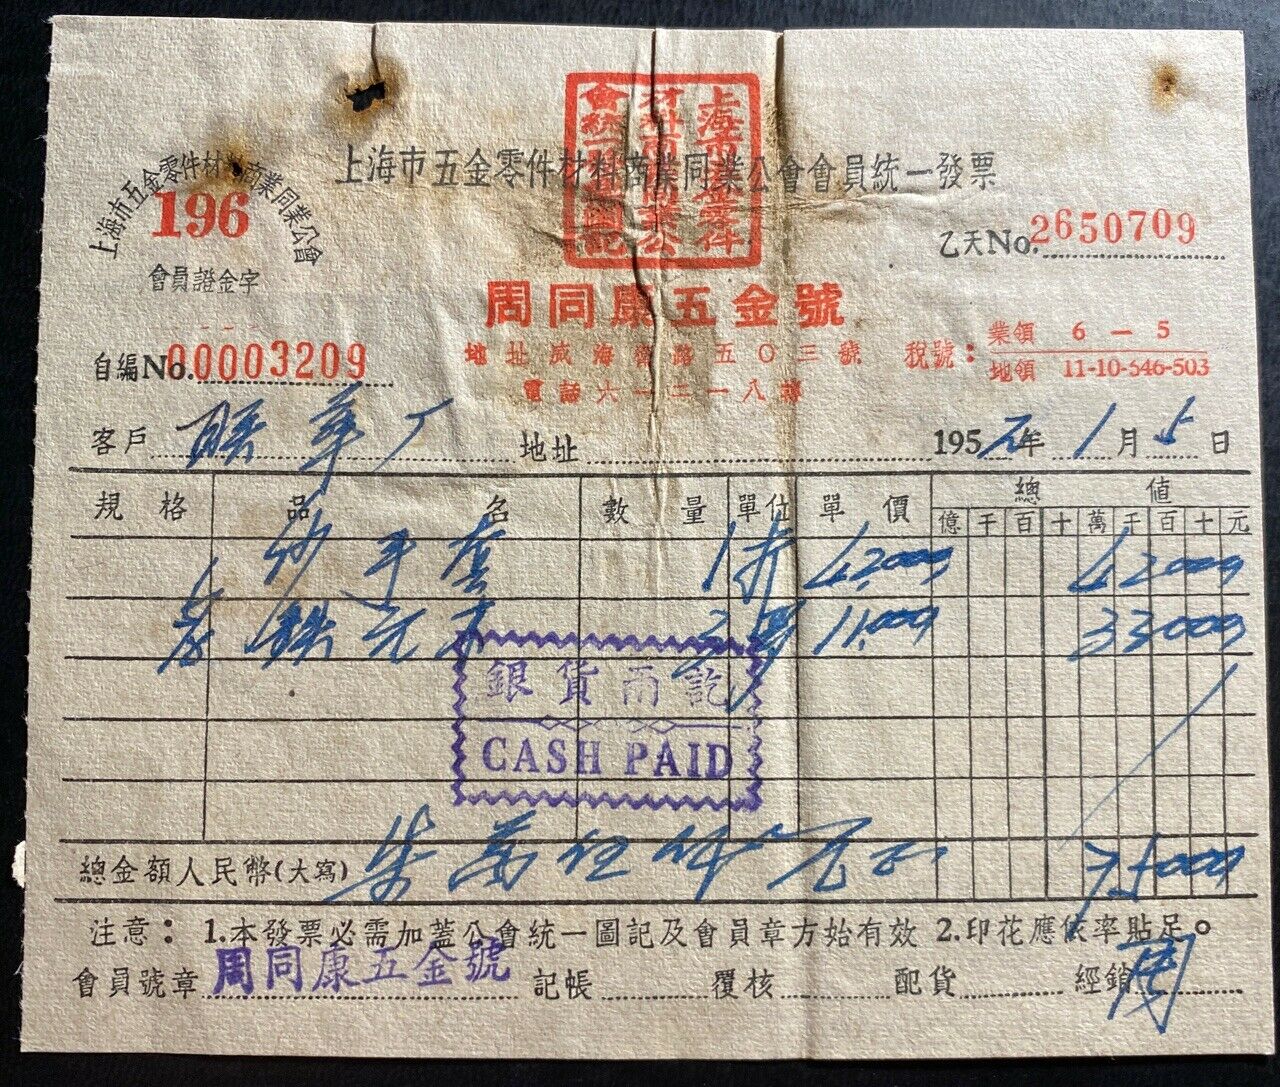 上海市五金零件材料商業同業公會會員統一發票
上海市五金零件材料商業同業公會
196
會員證金字
乙天No. 2650709
周同康五金號
地址威海衛路五〇三號
電話六一二一八轉
稅號：業領 6－5
地領 11-10-546-503
自編No. 00003209
客戶 聯華厂 地址 195 年 1 月 5 日
規格 品名 數量 單位 單價 總值
億 千 百 十 萬 千 百 十 元
紗手套 1 42000 42000
鐵元 3 11,000 33000
銀貨両訖
CASH PAID
總金額人民幣(大寫) 柒萬伍仟元正 75000
注意：1.本發票必需加蓋公會統一圖記及會員章方始有效 2.印花應依率貼足。
會員號章 周同康五金號 記帳 覆核 配貨 經銷 周